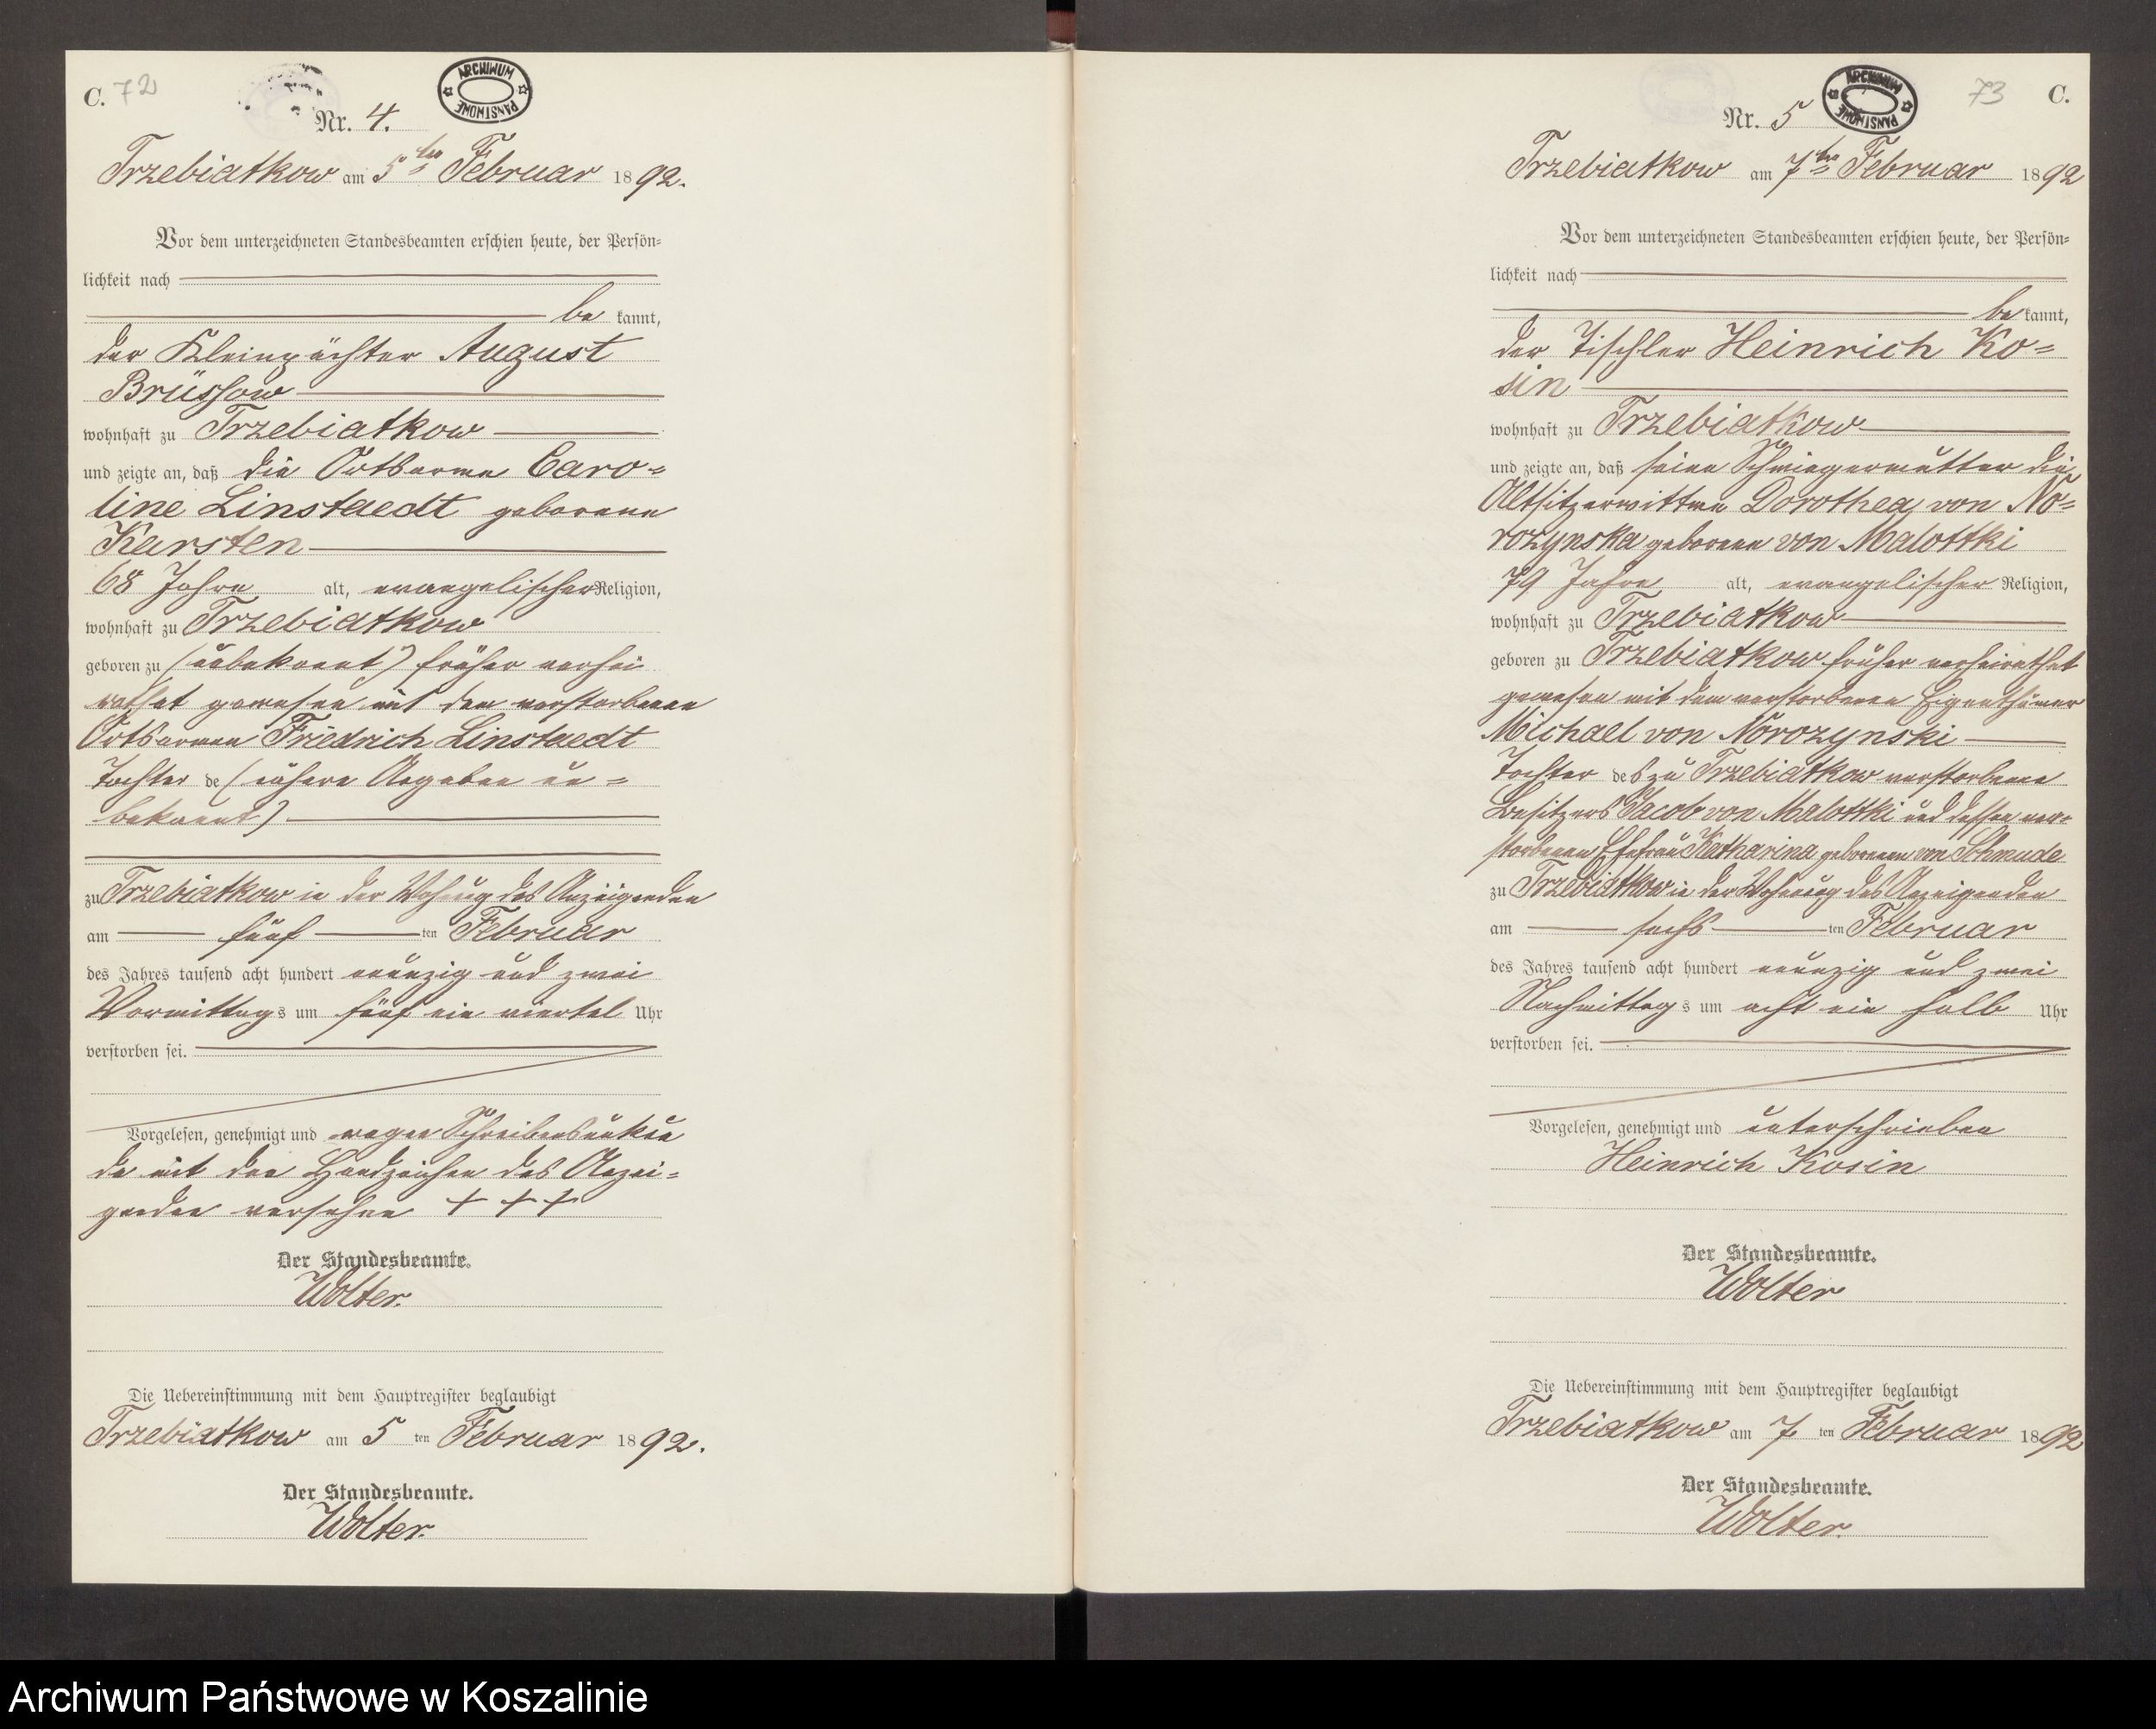 C. 72
ARCHIWUM PAŃSTWOWE
Nr. 4.
Trzebiatkow am 5ten Februar 1892.
Vor dem unterzeichneten Standesbeamten erschien heute, der Persön=
lichkeit nach
be kannt,
der Kleinpächter August
Brüssow
wohnhaft zu Trzebiatkow
und zeigte an, daß die Ortsarme Caro=
line Linstaedt geborene
Karsten
68 Jahre alt, evangelischer Religion,
wohnhaft zu Trzebiatkow
geboren zu (unbekannt) früher verhei
rathet gewesen mit dem verstorbenen
Ortsarmen Friedrich Linstaedt
Tochter de (nähere Angaben un=
bekannt)
zu Trzebiatkow in der Wohnung des Anzeigenden
am fünf ten Februar
des Jahres tausend acht hundert neunzig und zwei
Vormittags um fünf ein viertel Uhr
verstorben sei.
Vorgelesen, genehmigt und wegen Schreibensunkun
de mit den Handzeichen des Anzei=
genden versehen + + +
Der Standesbeamte.
Wolter.
Die Uebereinstimmung mit dem Hauptregister beglaubigt
Trzebiatkow am 5 ten Februar 1892.
Der Standesbeamte.
Wolter.
73 C.
ARCHIWUM PAŃSTWOWE
Nr. 5
Trzebiatkow am 7ten Februar 1892
Vor dem unterzeichneten Standesbeamten erschien heute, der Persön=
lichkeit nach
be kannt,
der Tischler Heinrich Ko=
sin
wohnhaft zu Trzebiatkow
und zeigte an, daß seine Schwiegermutter die
Altsitzerwittwe Dorothea von No=
rozynska geborene von Malottki
79 Jahre alt, evangelischer Religion,
wohnhaft zu Trzebiatkow
geboren zu Trzebiatkow früher verheirathet
gewesen mit dem verstorbenen Eigenthümer
Michael von Norozynski
Tochter des zu Trzebiatkow verstorbenen
Besitzers Jacob von Malottki und dessen ver=
storbenen Ehefrau Katharina geborenen von Schmude
zu Trzebiatkow in der Wohnung des Anzeigenden
am sechs ten Februar
des Jahres tausend acht hundert neunzig und zwei
Nachmittags um acht ein halb Uhr
verstorben sei.
Vorgelesen, genehmigt und unterschrieben
Heinrich Kosin
Der Standesbeamte.
Wolter
Die Uebereinstimmung mit dem Hauptregister beglaubigt
Trzebiatkow am 7 ten Februar 1892
Der Standesbeamte.
Wolter.
Archiwum Państwowe w Koszalinie